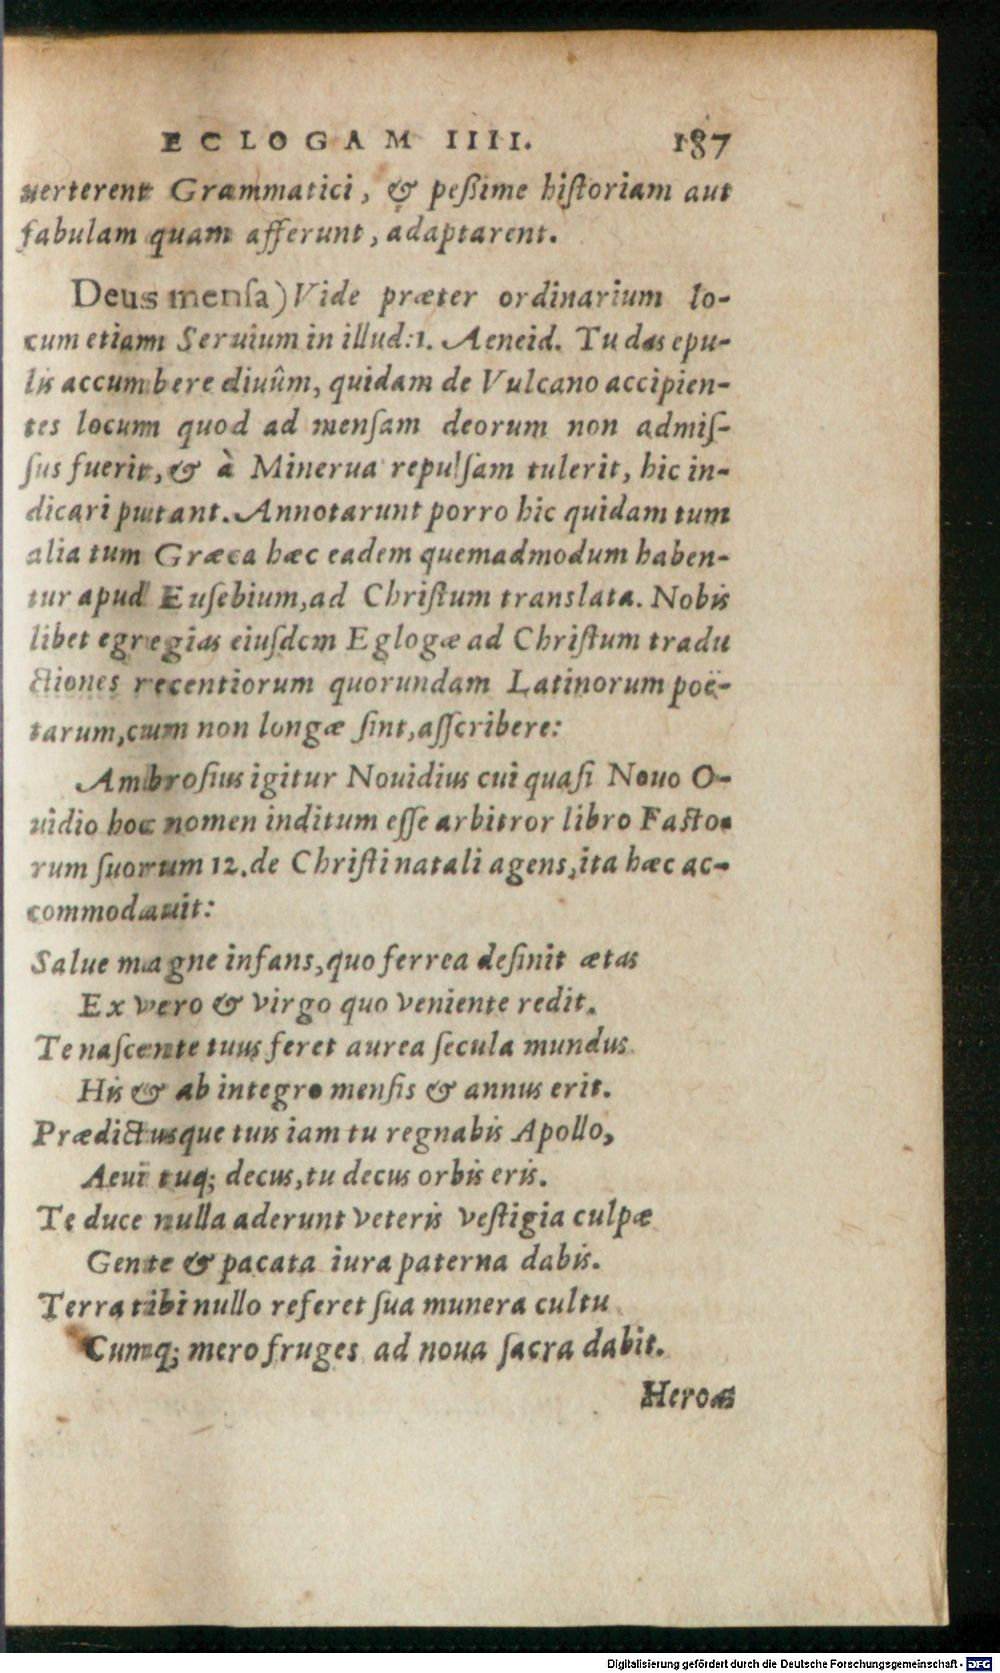 ECLOGAM IIII. 187
uerterent Grammatici, & peßime hiſtoriam aut
fabulam quam afferunt, adaptarent.
Deus menſa) Vide præter ordinarium lo-
cum etiam Seruium in illud: 1. Aeneid. Tu das epu-
lis accumbere diuûm, quidam de Vulcano accipien-
tes locum quod ad menſam deorum non admiſ-
ſus fuerit, & à Minerua repulſam tulerit, hic in-
dicari putant. Annotarunt porro hic quidam tum
alia tum Græca hæc eadem quemadmodum haben-
tur apud Euſebium, ad Chriſtum translata. Nobis
libet egregias eiuſdem Eglogæ ad Chriſtum tradu
ctiones recentiorum quorundam Latinorum poë-
tarum, cum non longæ ſint, aſſcribere:
Ambroſius igitur Nouidius cui quaſi Nouo O-
uidio hoc nomen inditum eſſe arbitror libro Faſto-
rum ſuorum 12. de Chriſti natali agens, ita hæc ac-
commodauit:
Salue magne infans, quo ferrea deſinit ætas
Ex vero & virgo quo veniente redit.
Te naſcente tuus feret aurea ſecula mundus
His & ab integro menſis & annus erit.
Prædictusque tuis iam tu regnabis Apollo,
Aeui tuq; decus, tu decus orbis eris.
Te duce nulla aderunt veteris veſtigia culpæ
Gente & pacata iura paterna dabis.
Terra tibi nullo referet ſua munera cultu
Cumq; mero fruges ad noua ſacra dabit.
Heroas
Digitalisierung gefördert durch die Deutsche Forschungsgemeinschaft - DFG